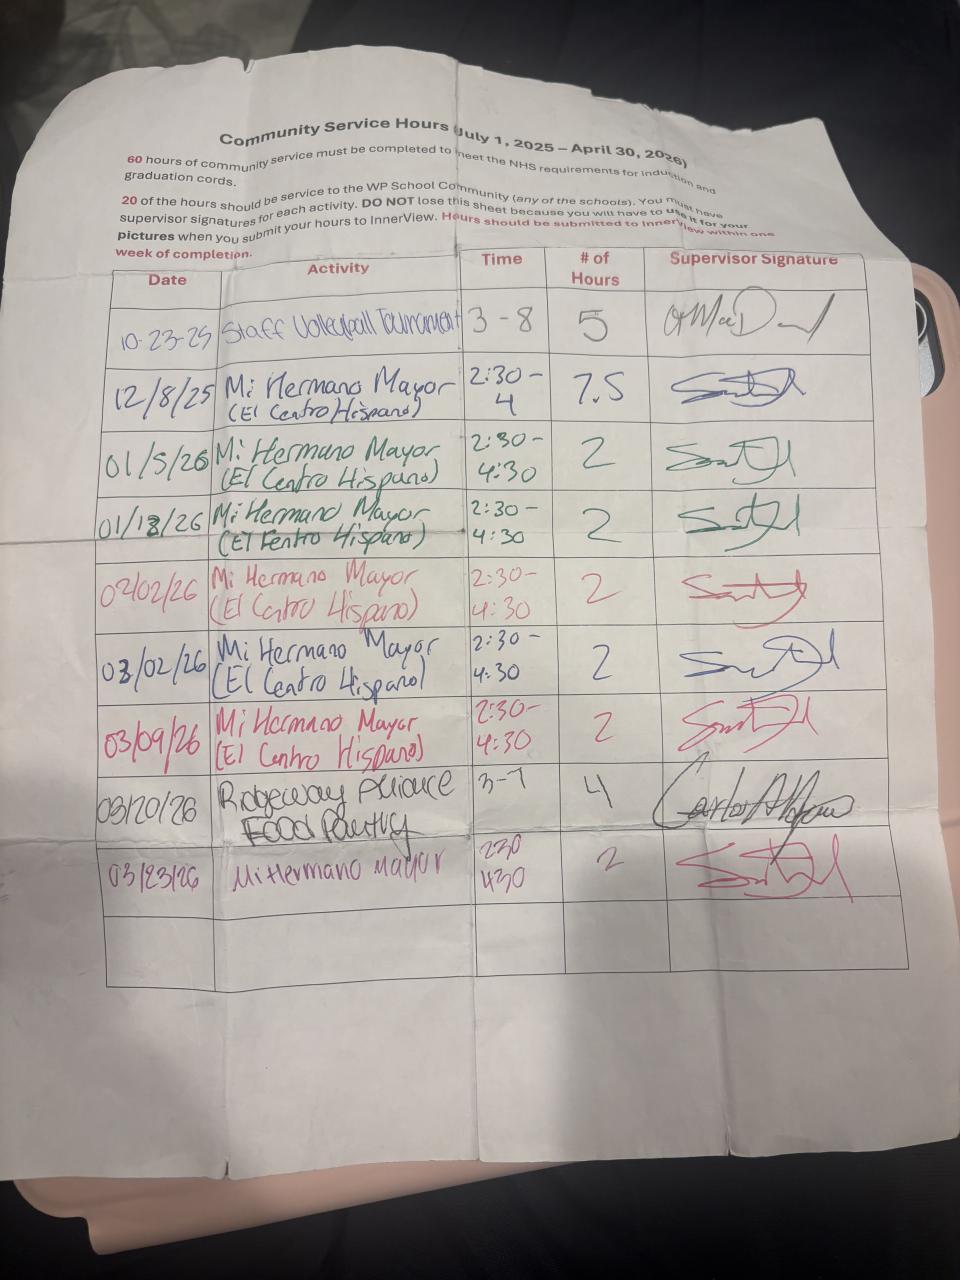 Community Service Hours (July 1, 2025 – April 30, 2026)
60 hours of community service must be completed to meet the NHS requirements for induction and
graduation cords.
20 of the hours should be service to the WP School Community (any of the schools). You must have
supervisor signatures for each activity. DO NOT lose this sheet because you will have to use it for your
pictures when you submit your hours to InnerView. Hours should be submitted to InnerView within one
week of completion.
Date Activity Time # of Hours Supervisor Signature
10-23-25 Staff Volleyball Tournament 3 - 8 5
12/8/25 Mi Hermano Mayor 2:30 -
(El Centro Hispano) 4 7.5
01/5/26 Mi Hermano Mayor 2:30 -
(El Centro Hispano) 4:30 2
01/12/26 Mi Hermano Mayor 2:30 -
(El Fentro Hispano) 4:30 2
02/02/26 Mi Hermano Mayor 2:30 -
(El Centro Hispano) 4:30 2
03/02/26 Mi Hermano Mayor 2:30 -
(El Centro Hispano) 4:30 2
03/09/26 Mi Hermano Mayor 2:30 -
(El Centro Hispano) 4:30 2
03/20/26 Ridgeway Alliance 3-7 4 Carlos
Food Pantry
03/23/26 Mi Hermano Mayor 230 2
430